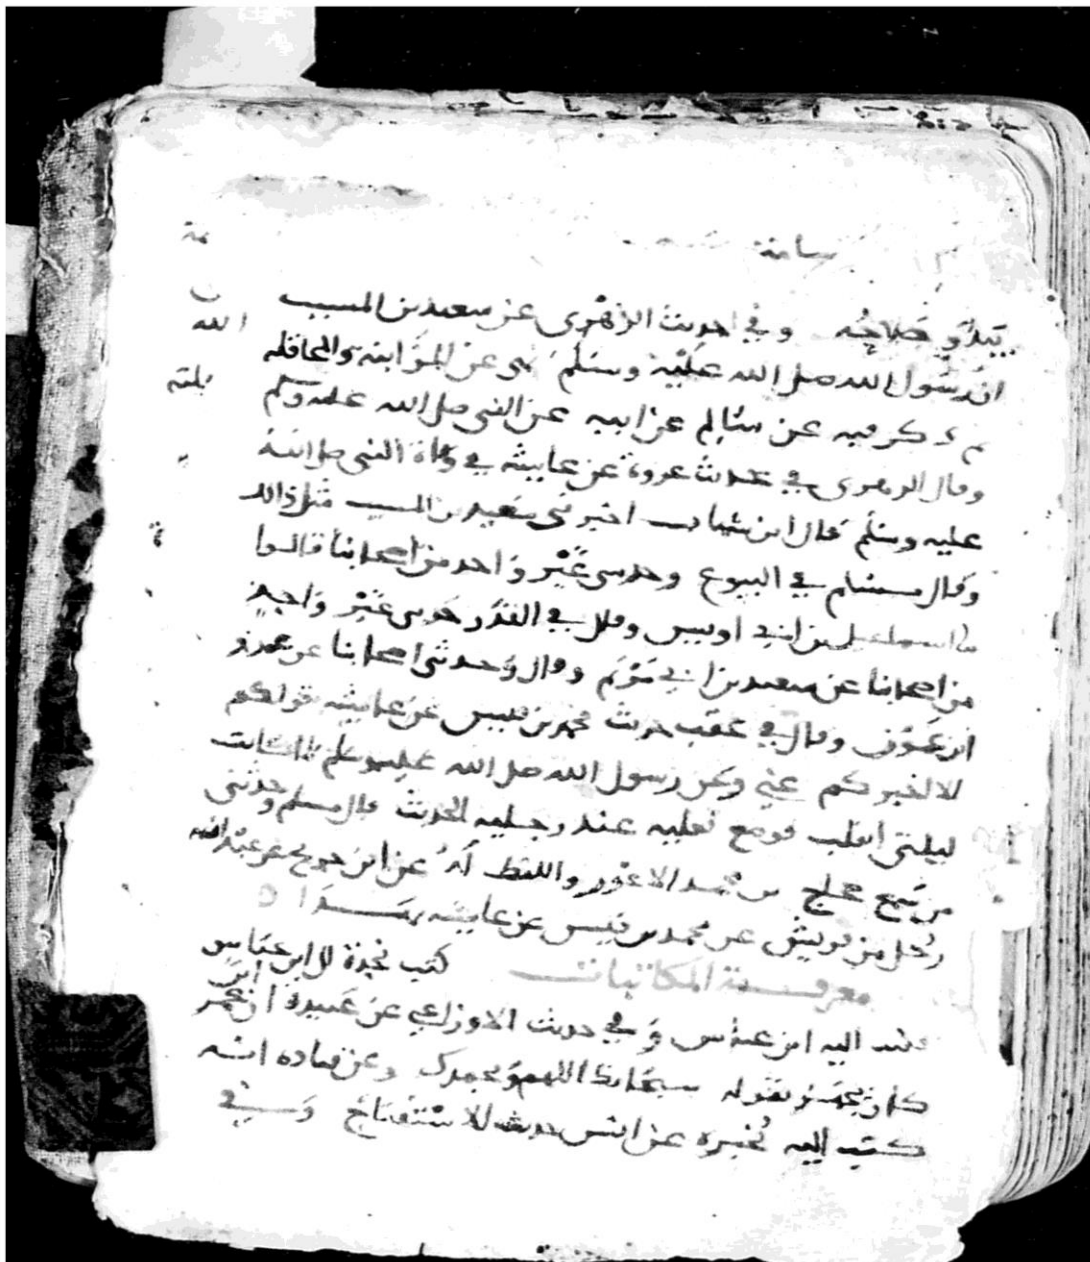 يبدو صلاحه وفي حديث الزهري عن سعيد بن المسيب
ان رسول الله صلى الله عليه وسلم نهى عن المزابنة والمحاقله
ثم ذكر فيه عن سالم عن ابيه عن النبي صلى الله عليه وسلم
وقال الزهري في حديث عروة عن عايشه في وفاة النبي صلى الله
عليه وسلم قال ابن شهاب اخبرني سعيد بن المسيب مثل ذالك
وقال مسلم في البيوع وحدثني غير واحد من اصحابنا قالوا
نا اسماعيل بن ابي اويس وقال في القدر حدثني غير واحد
من اصحابنا عن سعيد بن ابي مريم وقال وحدثني اصحابنا عن عمرو
ابن عون وقال في عقب حديث محمد بن قيس عن عايشه قولهم
الا اخبركم عني وعن رسول الله صلى الله عليه وسلم لما كانت
ليلتي انقلب فوضع نعليه عند رجليه الحديث قال مسلم وحدثني
من سمع حجاج بن محمد الاعور واللفظ له عن ابن جريج عن عبد الله
رجل من قريش عن محمد بن قيس عن عايشه بهذا
معرفة المكاتبات كتب نجدة الى ابن عباس
فكتب اليه ابن عباس وفي حديث الاوزاعي عن عبدة ان عمر
كان يجهر بقوله سبحانك اللهم وبحمدك وعن قتاده انه
كتب اليه يخبره عن انس حديث الاستفتاح وفي